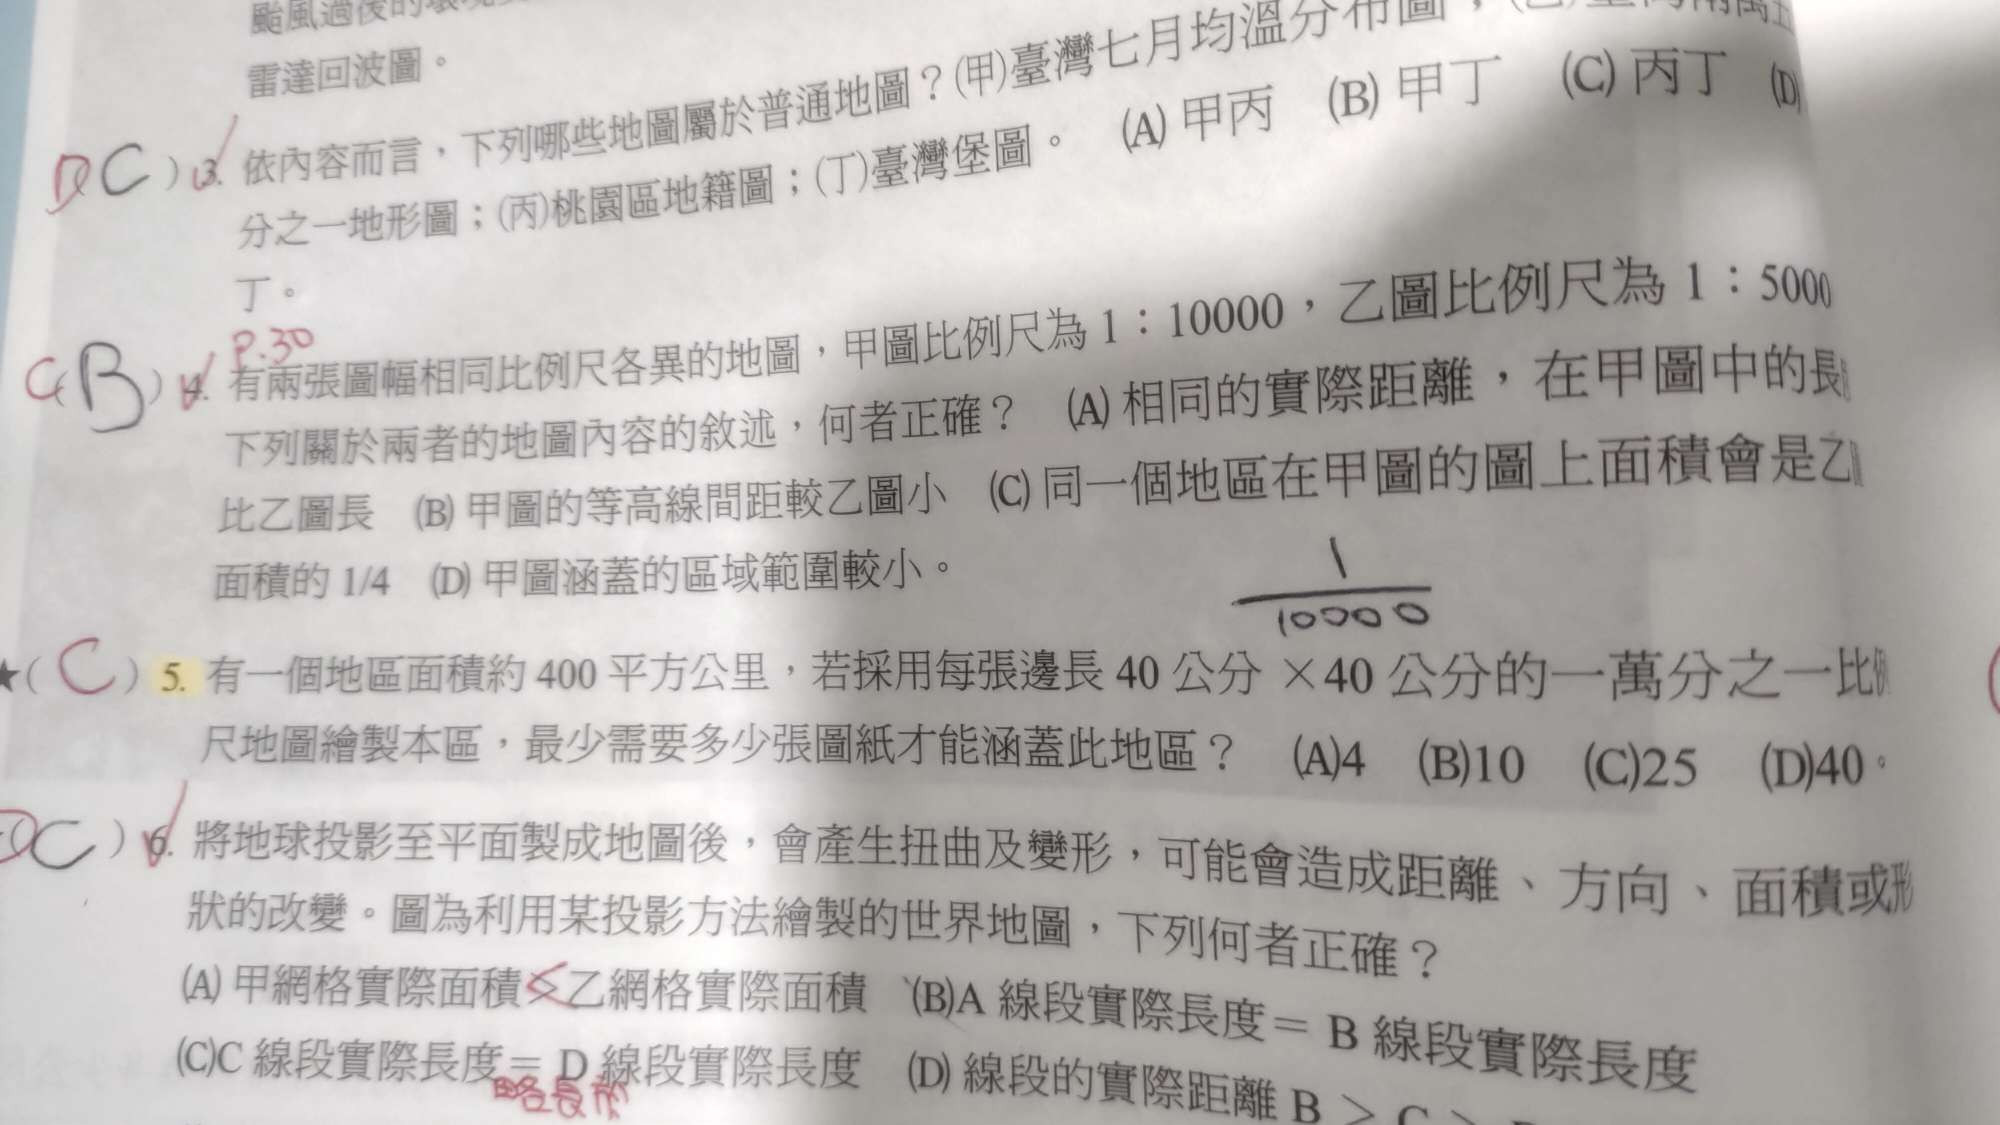 颱風過後的環境
雷達回波圖。
D C ) 3. 依內容而言，下列哪些地圖屬於普通地圖？(甲)臺灣七月均溫分布圖；(乙)臺灣兩萬五
分之一地形圖；(丙)桃園區地籍圖；(丁)臺灣堡圖。 (A) 甲丙 (B) 甲丁 (C) 丙丁 (D)
丁。
P.30
C( B ) 4. 有兩張圖幅相同比例尺各異的地圖，甲圖比例尺為 1：10000，乙圖比例尺為 1：5000
下列關於兩者的地圖內容的敘述，何者正確？ (A) 相同的實際距離，在甲圖中的長
比乙圖長 (B) 甲圖的等高線間距較乙圖小 (C) 同一個地區在甲圖的圖上面積會是乙
面積的 1/4 (D) 甲圖涵蓋的區域範圍較小。
1
10000
★( C ) 5. 有一個地區面積約 400 平方公里，若採用每張邊長 40 公分 ×40 公分的一萬分之一比例
尺地圖繪製本區，最少需要多少張圖紙才能涵蓋此地區？ (A)4 (B)10 (C)25 (D)40。
C ) 6. 將地球投影至平面製成地圖後，會產生扭曲及變形，可能會造成距離、方向、面積或形
狀的改變。圖為利用某投影方法繪製的世界地圖，下列何者正確？
(A) 甲網格實際面積＜乙網格實際面積 (B)A 線段實際長度＝ B 線段實際長度
(C)C 線段實際長度＝ D 線段實際長度 (D) 線段的實際距離 B ＞ C ＞
略長於